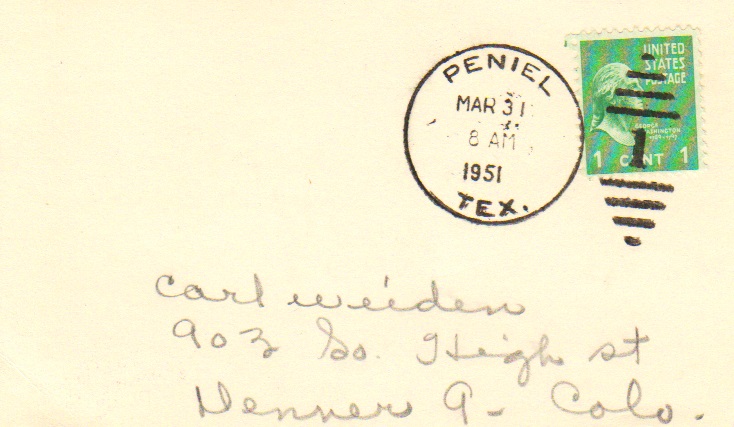 PENIEL
MAR 31
8 AM
1951
TEX.
UNITED
STATES
POSTAGE
GEORGE
WASHINGTON
1 CENT 1
1
Carl weiden
903 So. High st
Denver 9- Colo.